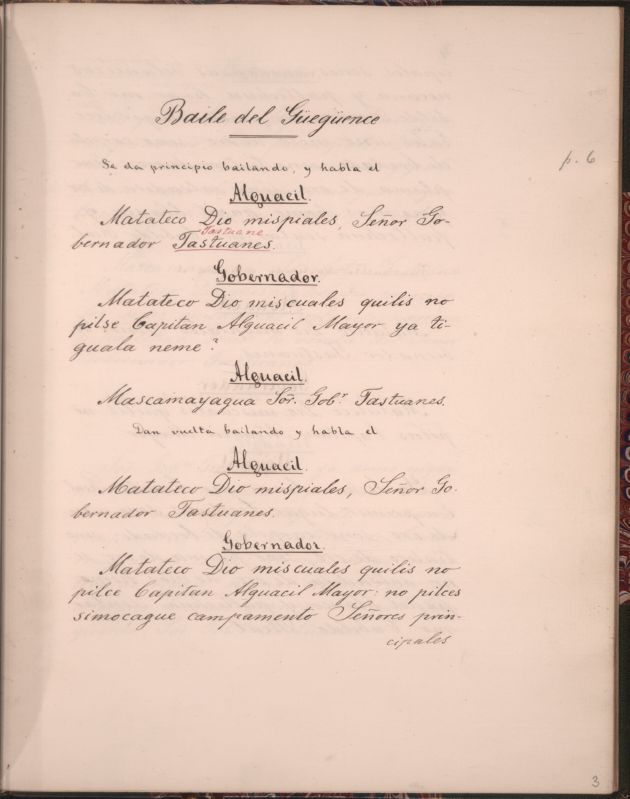 Baile del Güegüence
p. 6
Se da principio bailando, y habla el
Alguacil.
Matateco Dio mispiales, Señor Go-
Tastuane.
bernador Tastuanes.
Gobernador.
Matateco Dio miscuales quilis no
pilse Capitan Alguacil Mayor ya ti-
guala neme?
Alguacil.
Mascamayagua Sor. Gobr. Tastuanes.
Dan vuelta bailando y habla el
Alguacil.
Matateco Dio mispiales, Señor Go-
bernador Tastuanes.
Gobernador.
Matateco Dio miscuales quilis no
pilce Capitan Alguacil Mayor: no pilces
simocague campamento Señores prin-
cipales
3